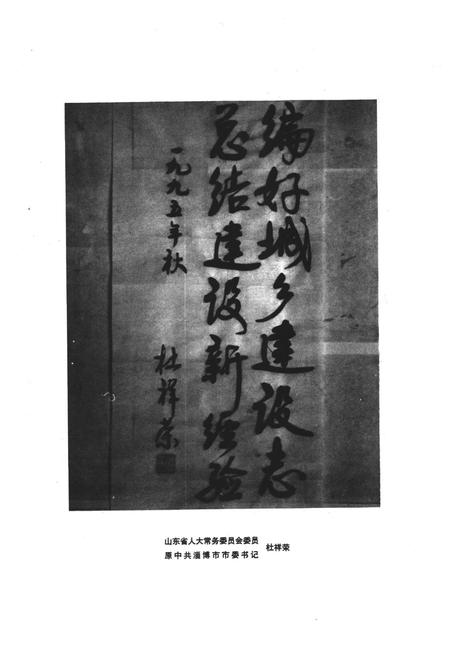 编好城乡建设志
总结建设新经验
一九九五年秋
杜祥荣
山东省人大常务委员会委员
原中共淄博市市委书记
杜祥荣